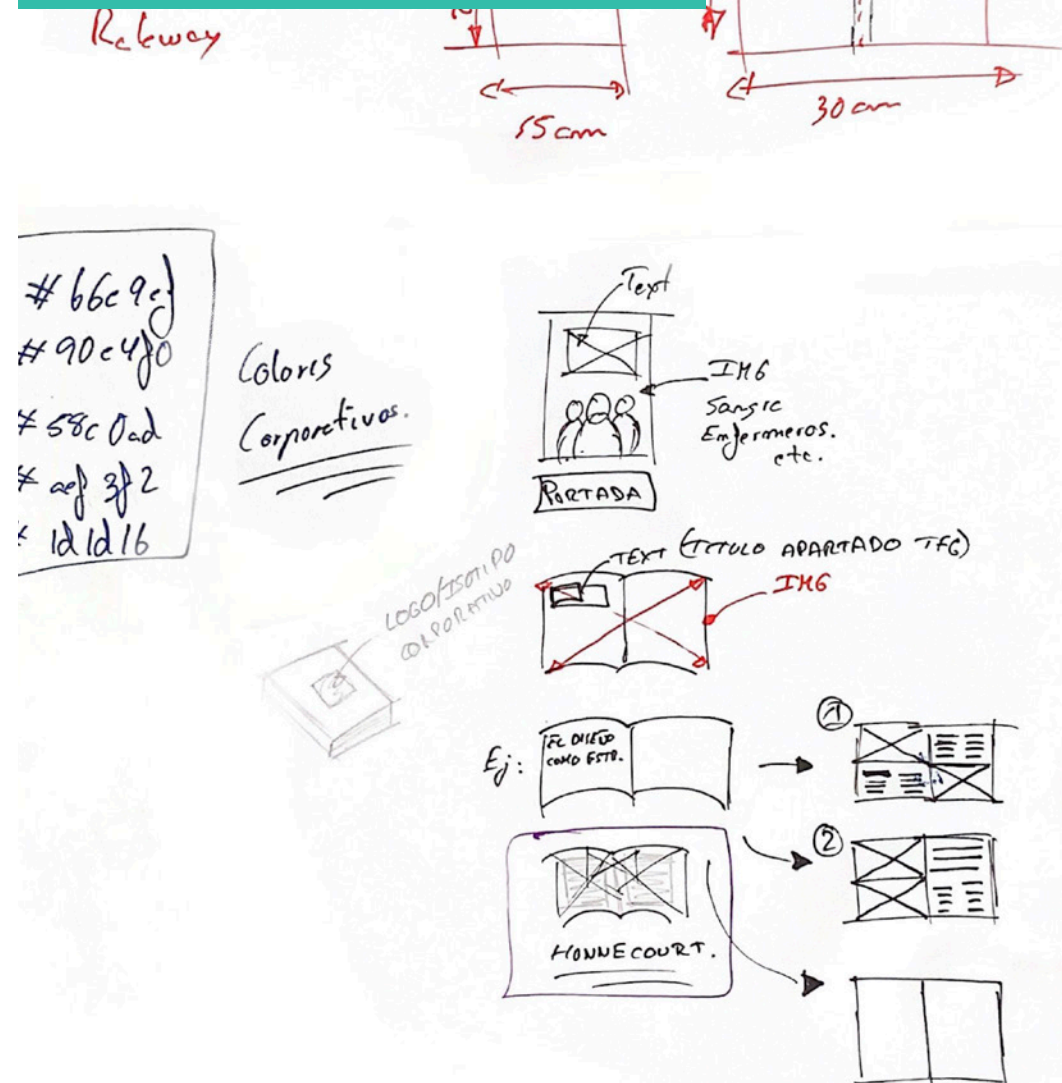 Raleway
15 cm
30 cm
# 66c9cf
# 90e4f0
# 58c0ad
# aef3f2
# 1d1d16
Colores
Corporativos.
Text
IMG
Sangre
Enfermeros.
etc.
PORTADA
TEXT (TITULO APARTADO TFG)
IMG
LOGO/ISOTIPO
CORPORATIVO
Ej:
EL DISEÑO
COMO ESTR.
1
2
HONNECOURT.